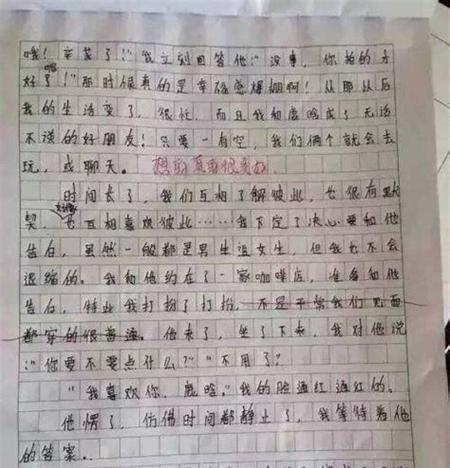 哦！辛苦了！”我立刻回答他：“没事，你拍的才
好嘞了！”那时候真的是幸福感爆棚啊！从那从后
我的生活变了，很忙，而且我和鹿晗成了无话
不谈的好朋友！只要一有空，我们俩个就会去
玩，或聊天。
时间长了，我们互相了解彼此，也很有默
契，好像也互相喜欢彼此……我下定了决心要和他
告白，虽然一般都是男生追女生，但我也不会
退缩的。我和他约在了一家咖啡店，准备和他
告白，特此我打扮了打扮，不是平常我们见面
都穿的很普通。他来了，坐了下来，我对他说
：“你要不要点什么？”“不用了？
“我喜欢你，鹿晗。”我的脸通红通红的。
他愣了，仿佛时间都静止了，我等待着他
的答案..